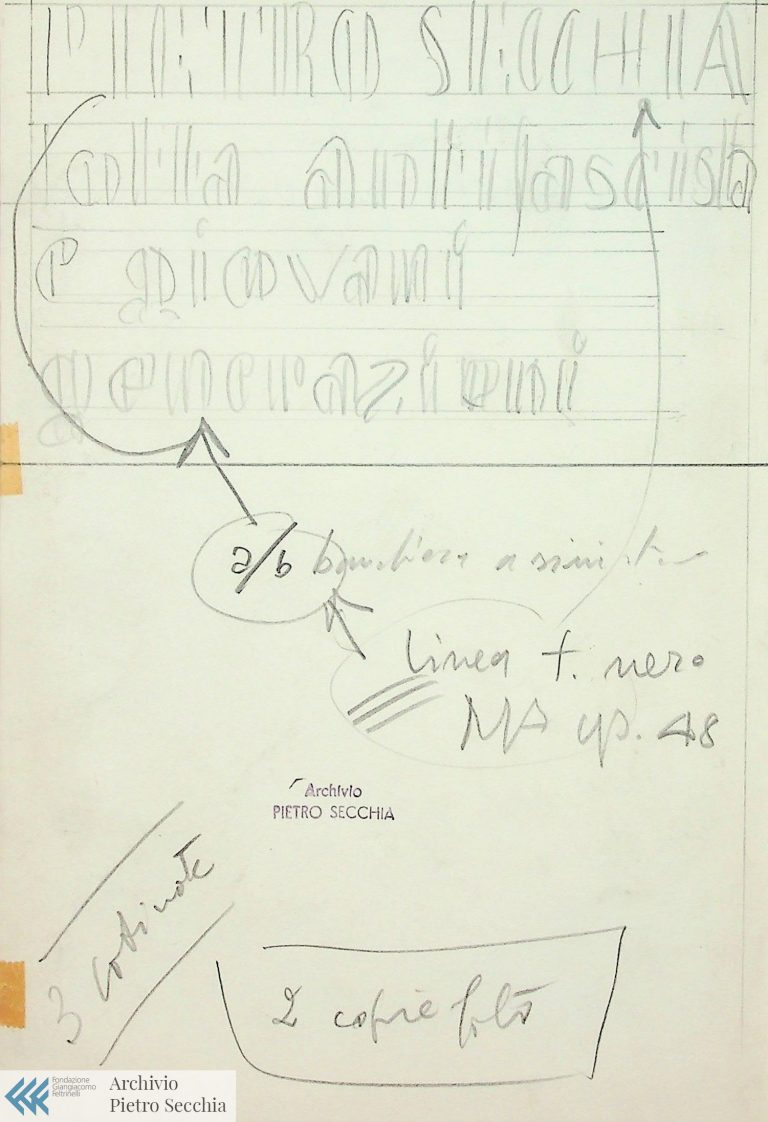 PIETRO SECCHIA
lotta antifascista
e giovani
generazioni
a/b bandiera a sinistra
linea t. nero
MA cp. 48
Archivio
PIETRO SECCHIA
3
2 copie foto
Fondazione
Giangiacomo
Feltrinelli
Archivio
Pietro Secchia